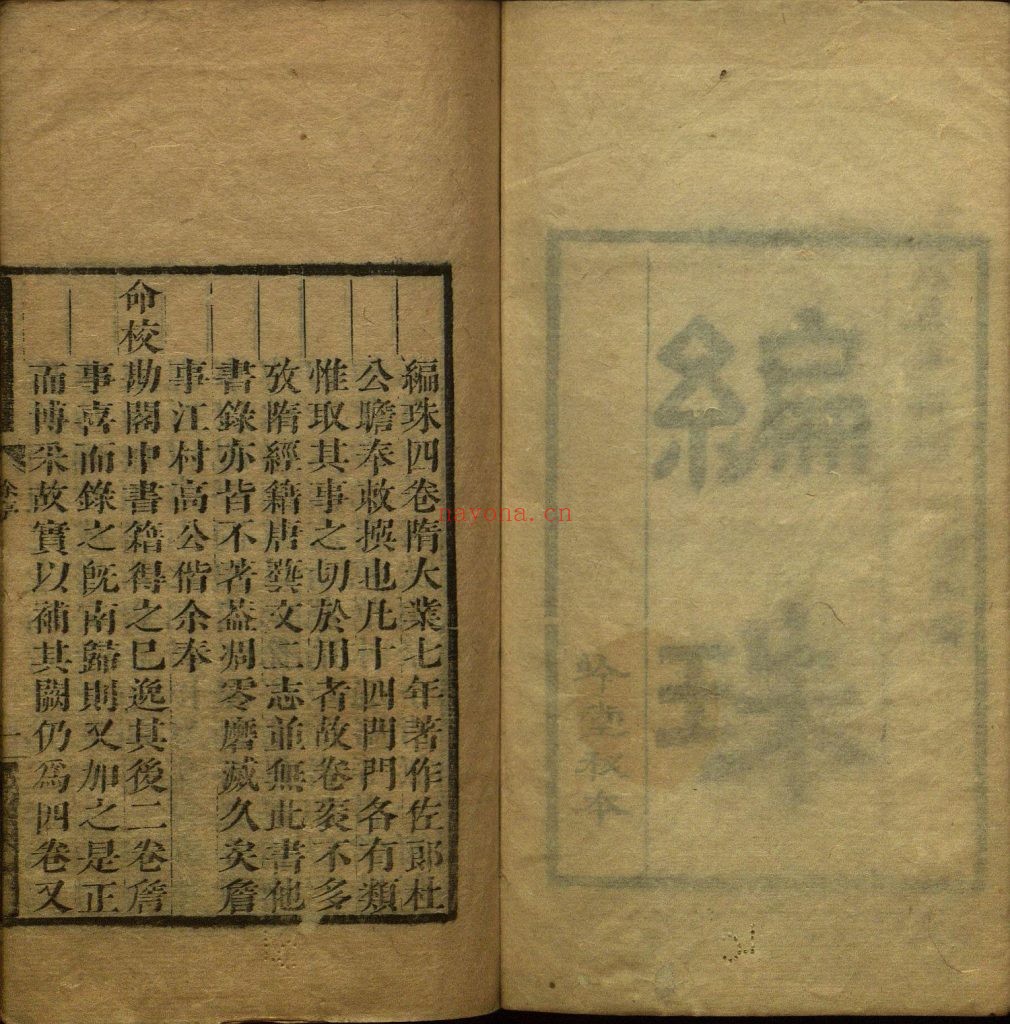 編
珠
編珠四卷隋大業七年著作佐郎杜
公瞻奉敕撰也凡十四門門各有類
惟取其事之切於用者故卷袠不多
攷隋經籍唐蓺文二志並無此書他
書錄亦皆不著葢凋零磨滅久矣詹
事江村高公偕余奉
命校勘閣中書籍得之已逸其後二卷詹
事喜而錄之旣南歸則又加之是正
而博采故實以補其闕仍爲四卷又
徐序
一
nayona.cn